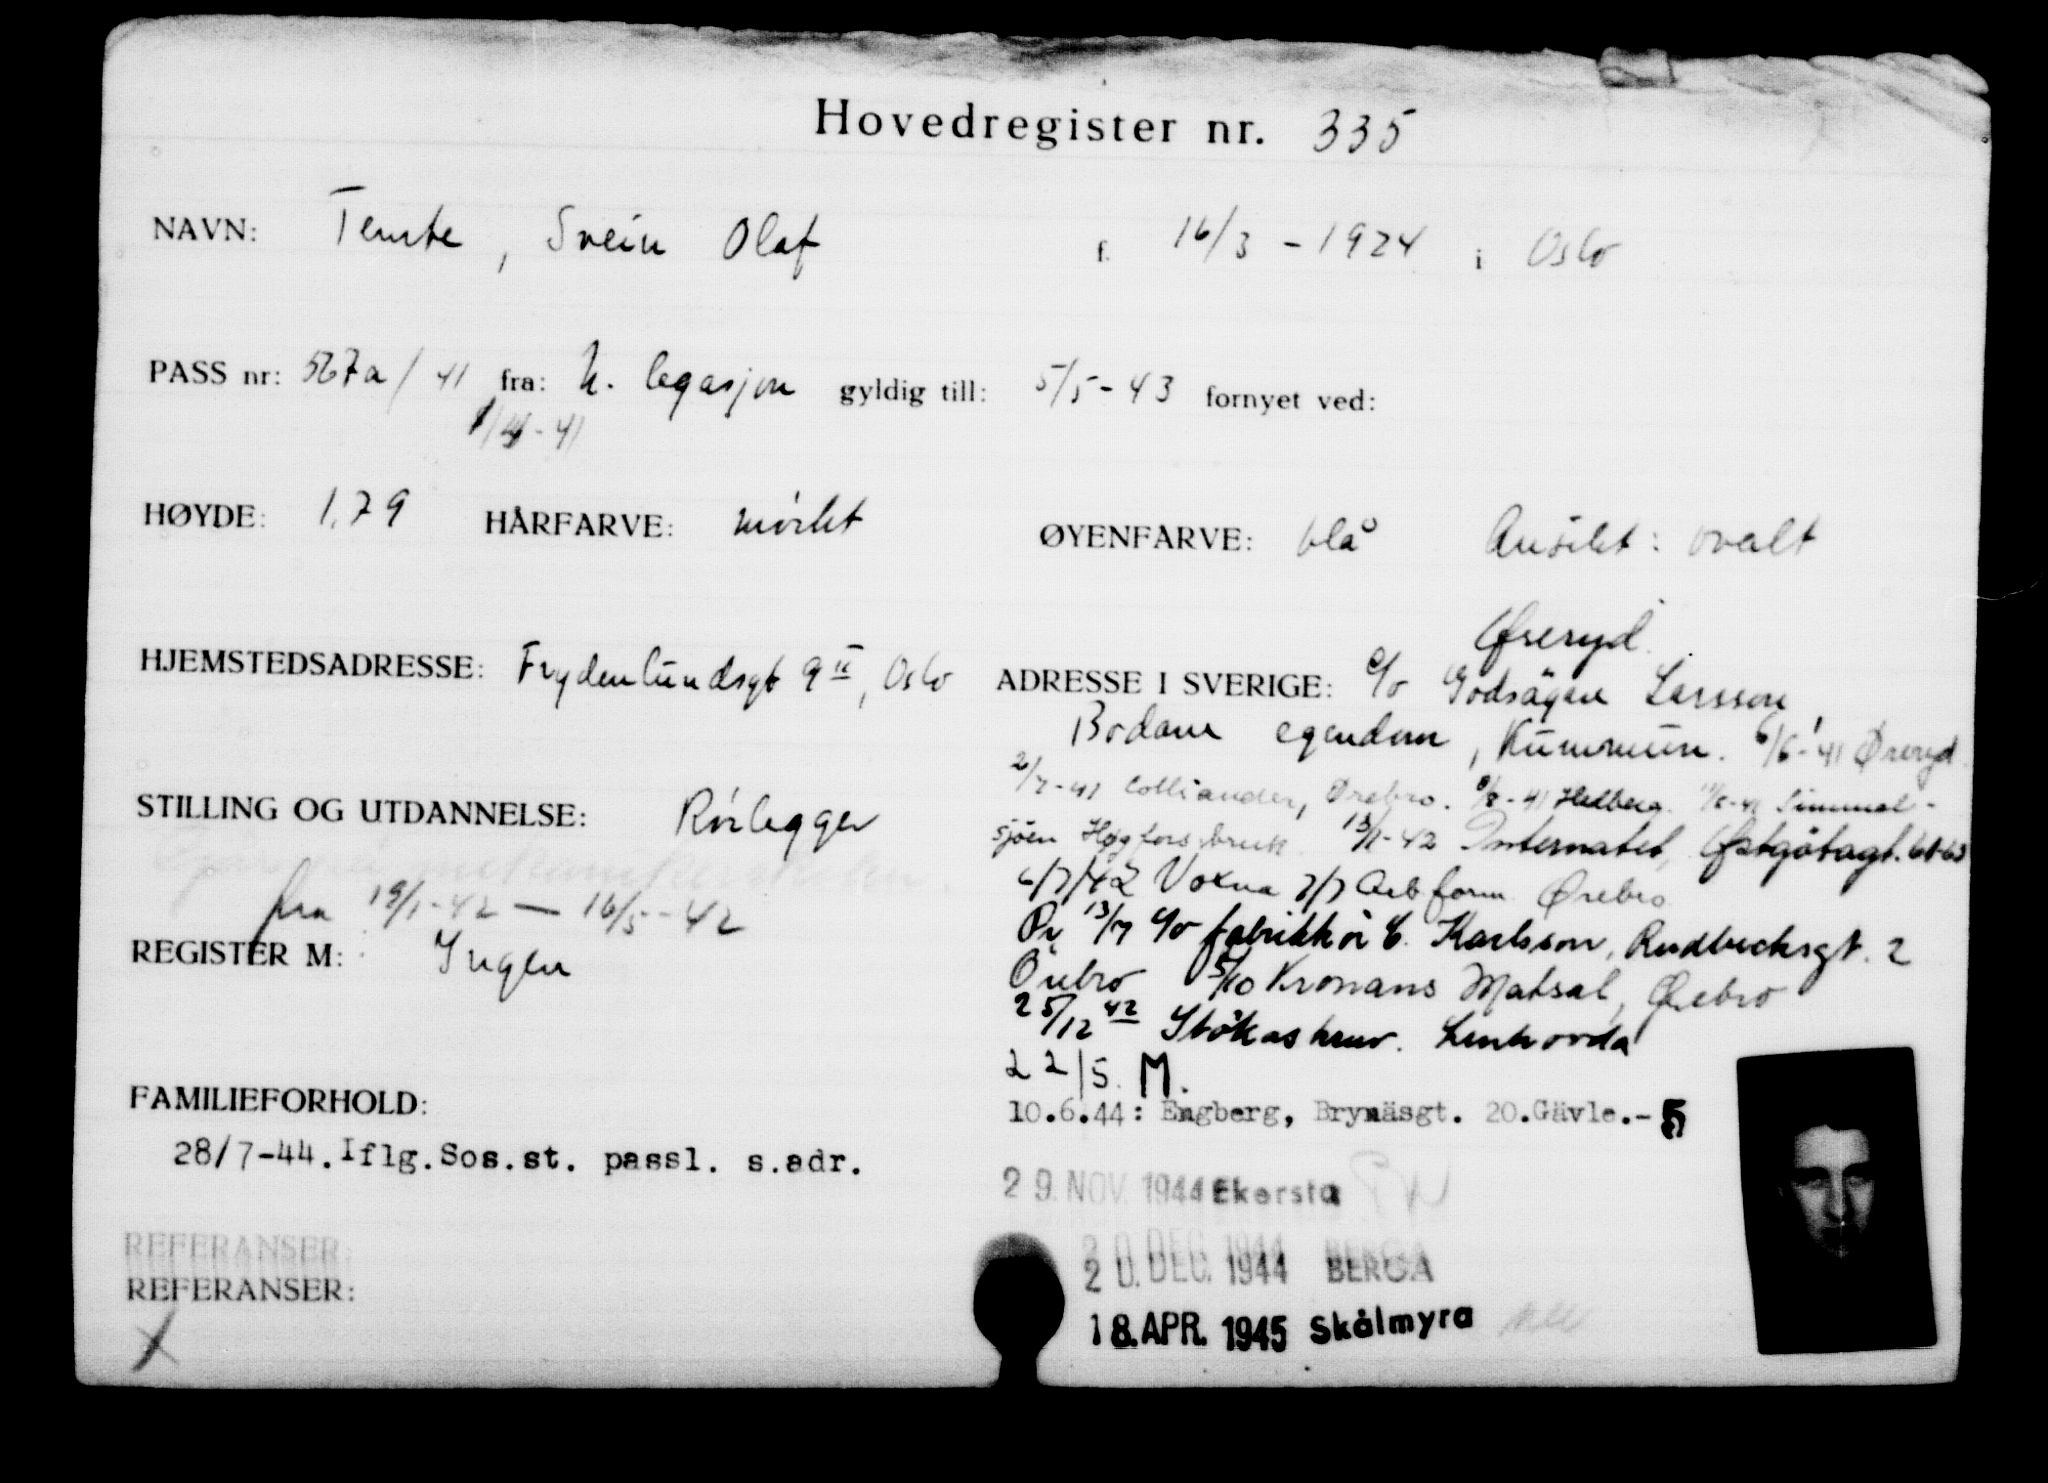 Hovedregister nr. 335
NAVN: Temte, Svein Olaf f. 16/3 - 1924 i Oslo
PASS nr: 567a / 41 fra: N. legasjon gyldig till: 5/5 - 43 fornyet ved:
/4 - 41
HØYDE: 1.79 HÅRFARVE: mörkt ØYENFARVE: blå Ansikt: ovalt
Øreryd.
HJEMSTEDSADRESSE: Frydenlundsgt 9 II, Oslo ADRESSE I SVERIGE: c/o Godsägare Larsson,
Bodane egendom, 6/6-41 Øreryd.
2/7-41 Colliander, Ørebro. 8/8-41 Hedberg. Simmel-
STILLING OG UTDANNELSE: Rörlegger
sjöen Høgforsbruk 13/1-42 Internatet, Østgötagt. 61-63
fra 19/1-42 — 16/5-42
6/7/42 Voxna 7/7 Arb form Ørebro
REGISTER M: Ingen
Pr 13/7 c/o fabrikkör E. Karlsson, Rudbecksgt. 2
Örebro 5/10 Kronans Matsal, Ørebro
25/12 42 Lenhovda
22/5. M.
FAMILIEFORHOLD:
10.6.44: Engberg, Brynäsgt. 20.Gävle.-5
28/7-44. Iflg.Sos.st. passl. s.adr.
29. NOV. 1944 Ekersta
REFERANSER:
20. DEC. 1944 BERGA
REFERANSER:
18. APR. 1945 Skålmyra
X